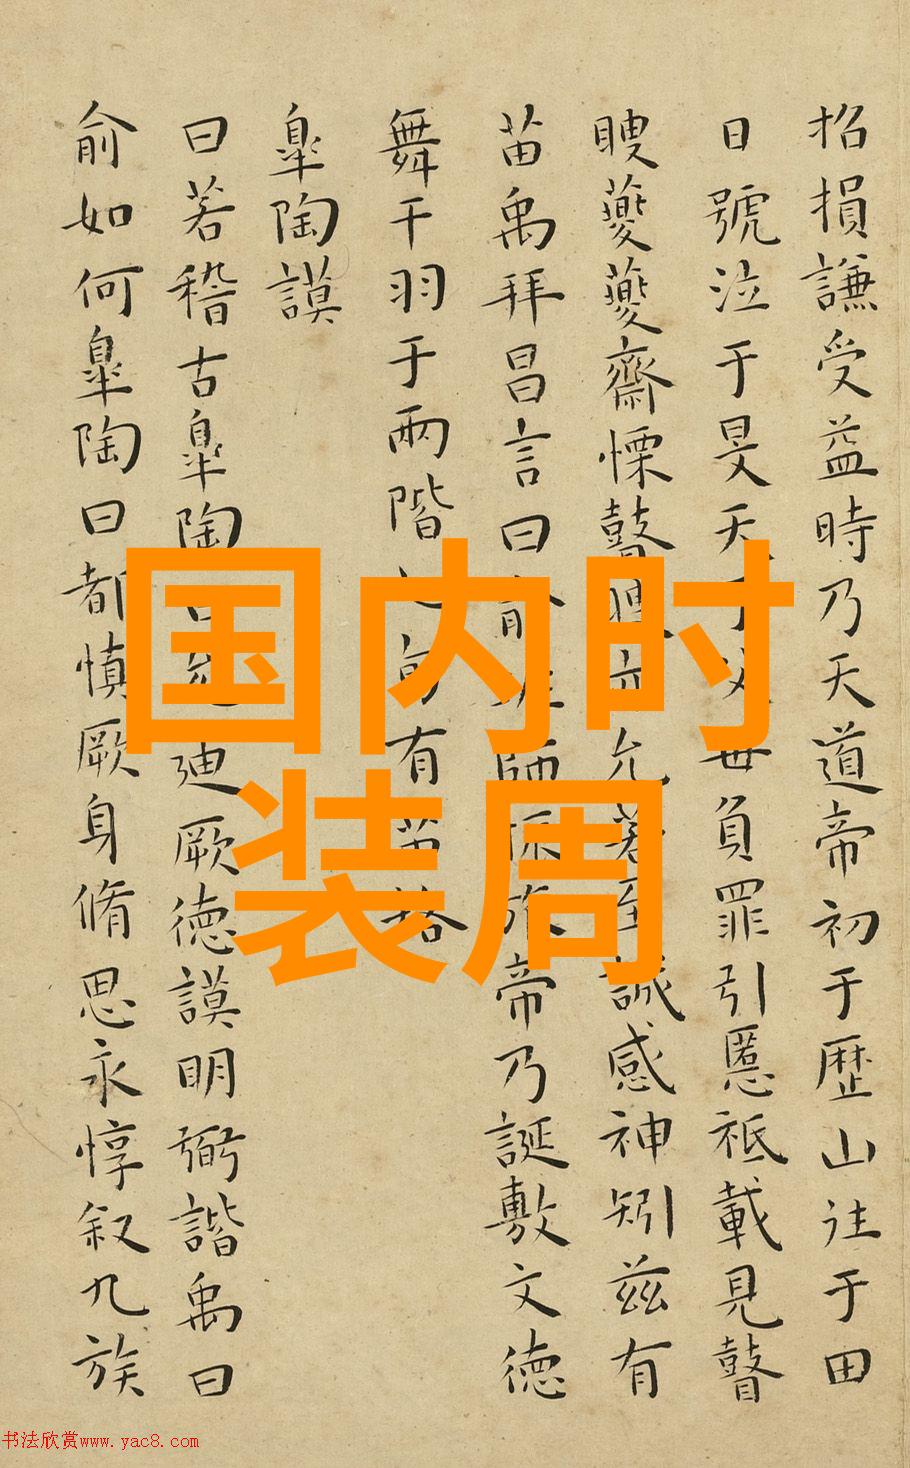 招損謙受益時乃天道帝初于歴山往于田
日號泣于旻天于父母負罪引慝祗載見瞽
瞍夔夔齋慄瞽瞍亦允若至諴感神矧茲有
苗禹拜昌言曰俞班師振旅帝乃誕敷文德
舞干羽于兩階七旬有苗格
臯陶謨
曰若稽古臯陶曰允迪厥德謨明弼諧禹曰
俞如何臯陶曰都慎厥身脩思永惇叙九族
国内时
装周
书法欣赏www.yac8.com